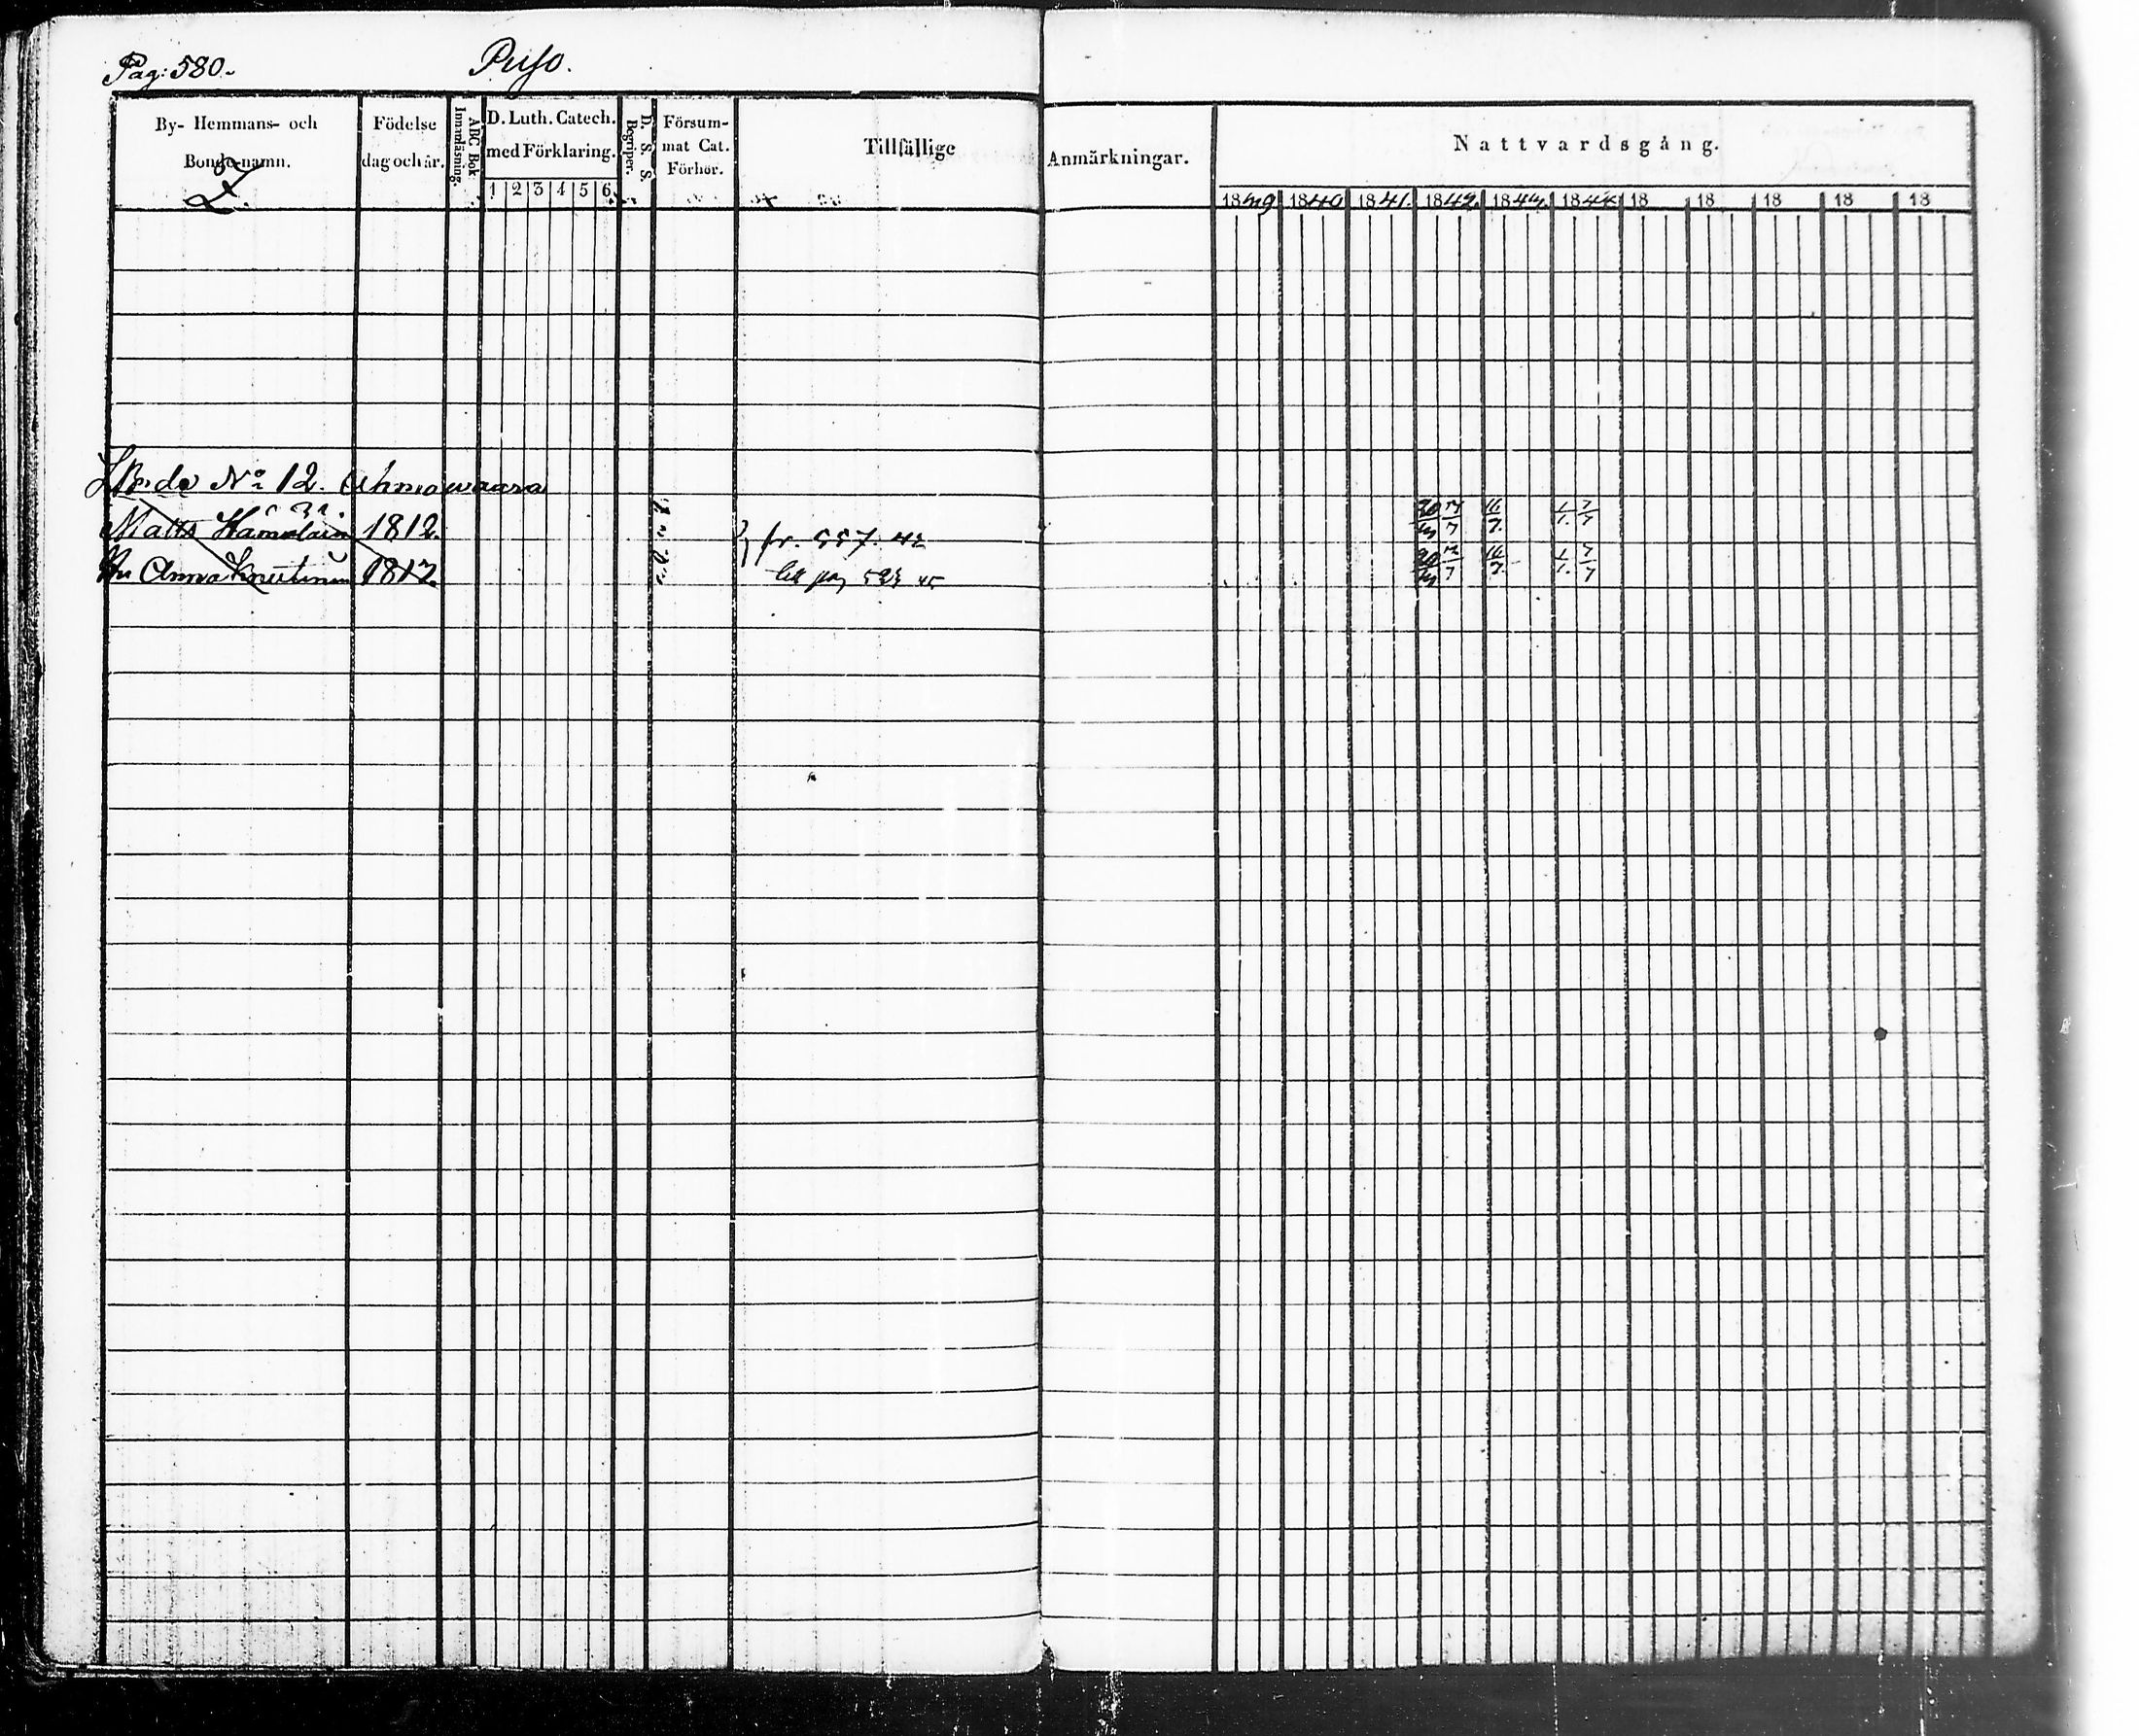 Pag: 580.
Puso.
By- Hemmans- och
Bondenamn.
Födelse
dag och år.
ABC Bok
Innanläsning.
D. Luth. Catech.
med Förklaring.
1 2 3 4 5 6
D. S. S.
Begriper.
Försum-
mat Cat.
Förhör.
Tillfällige
Anmärkningar.
Nattvardsgång.
1839 1840 1841. 1842. 1843. 1844. 18 18 18 18 18
No 12. Ahmowaara
Matts Hämäläin 1812.
Hu Anna 1812.
fr. 557. 42
till pag 523 45